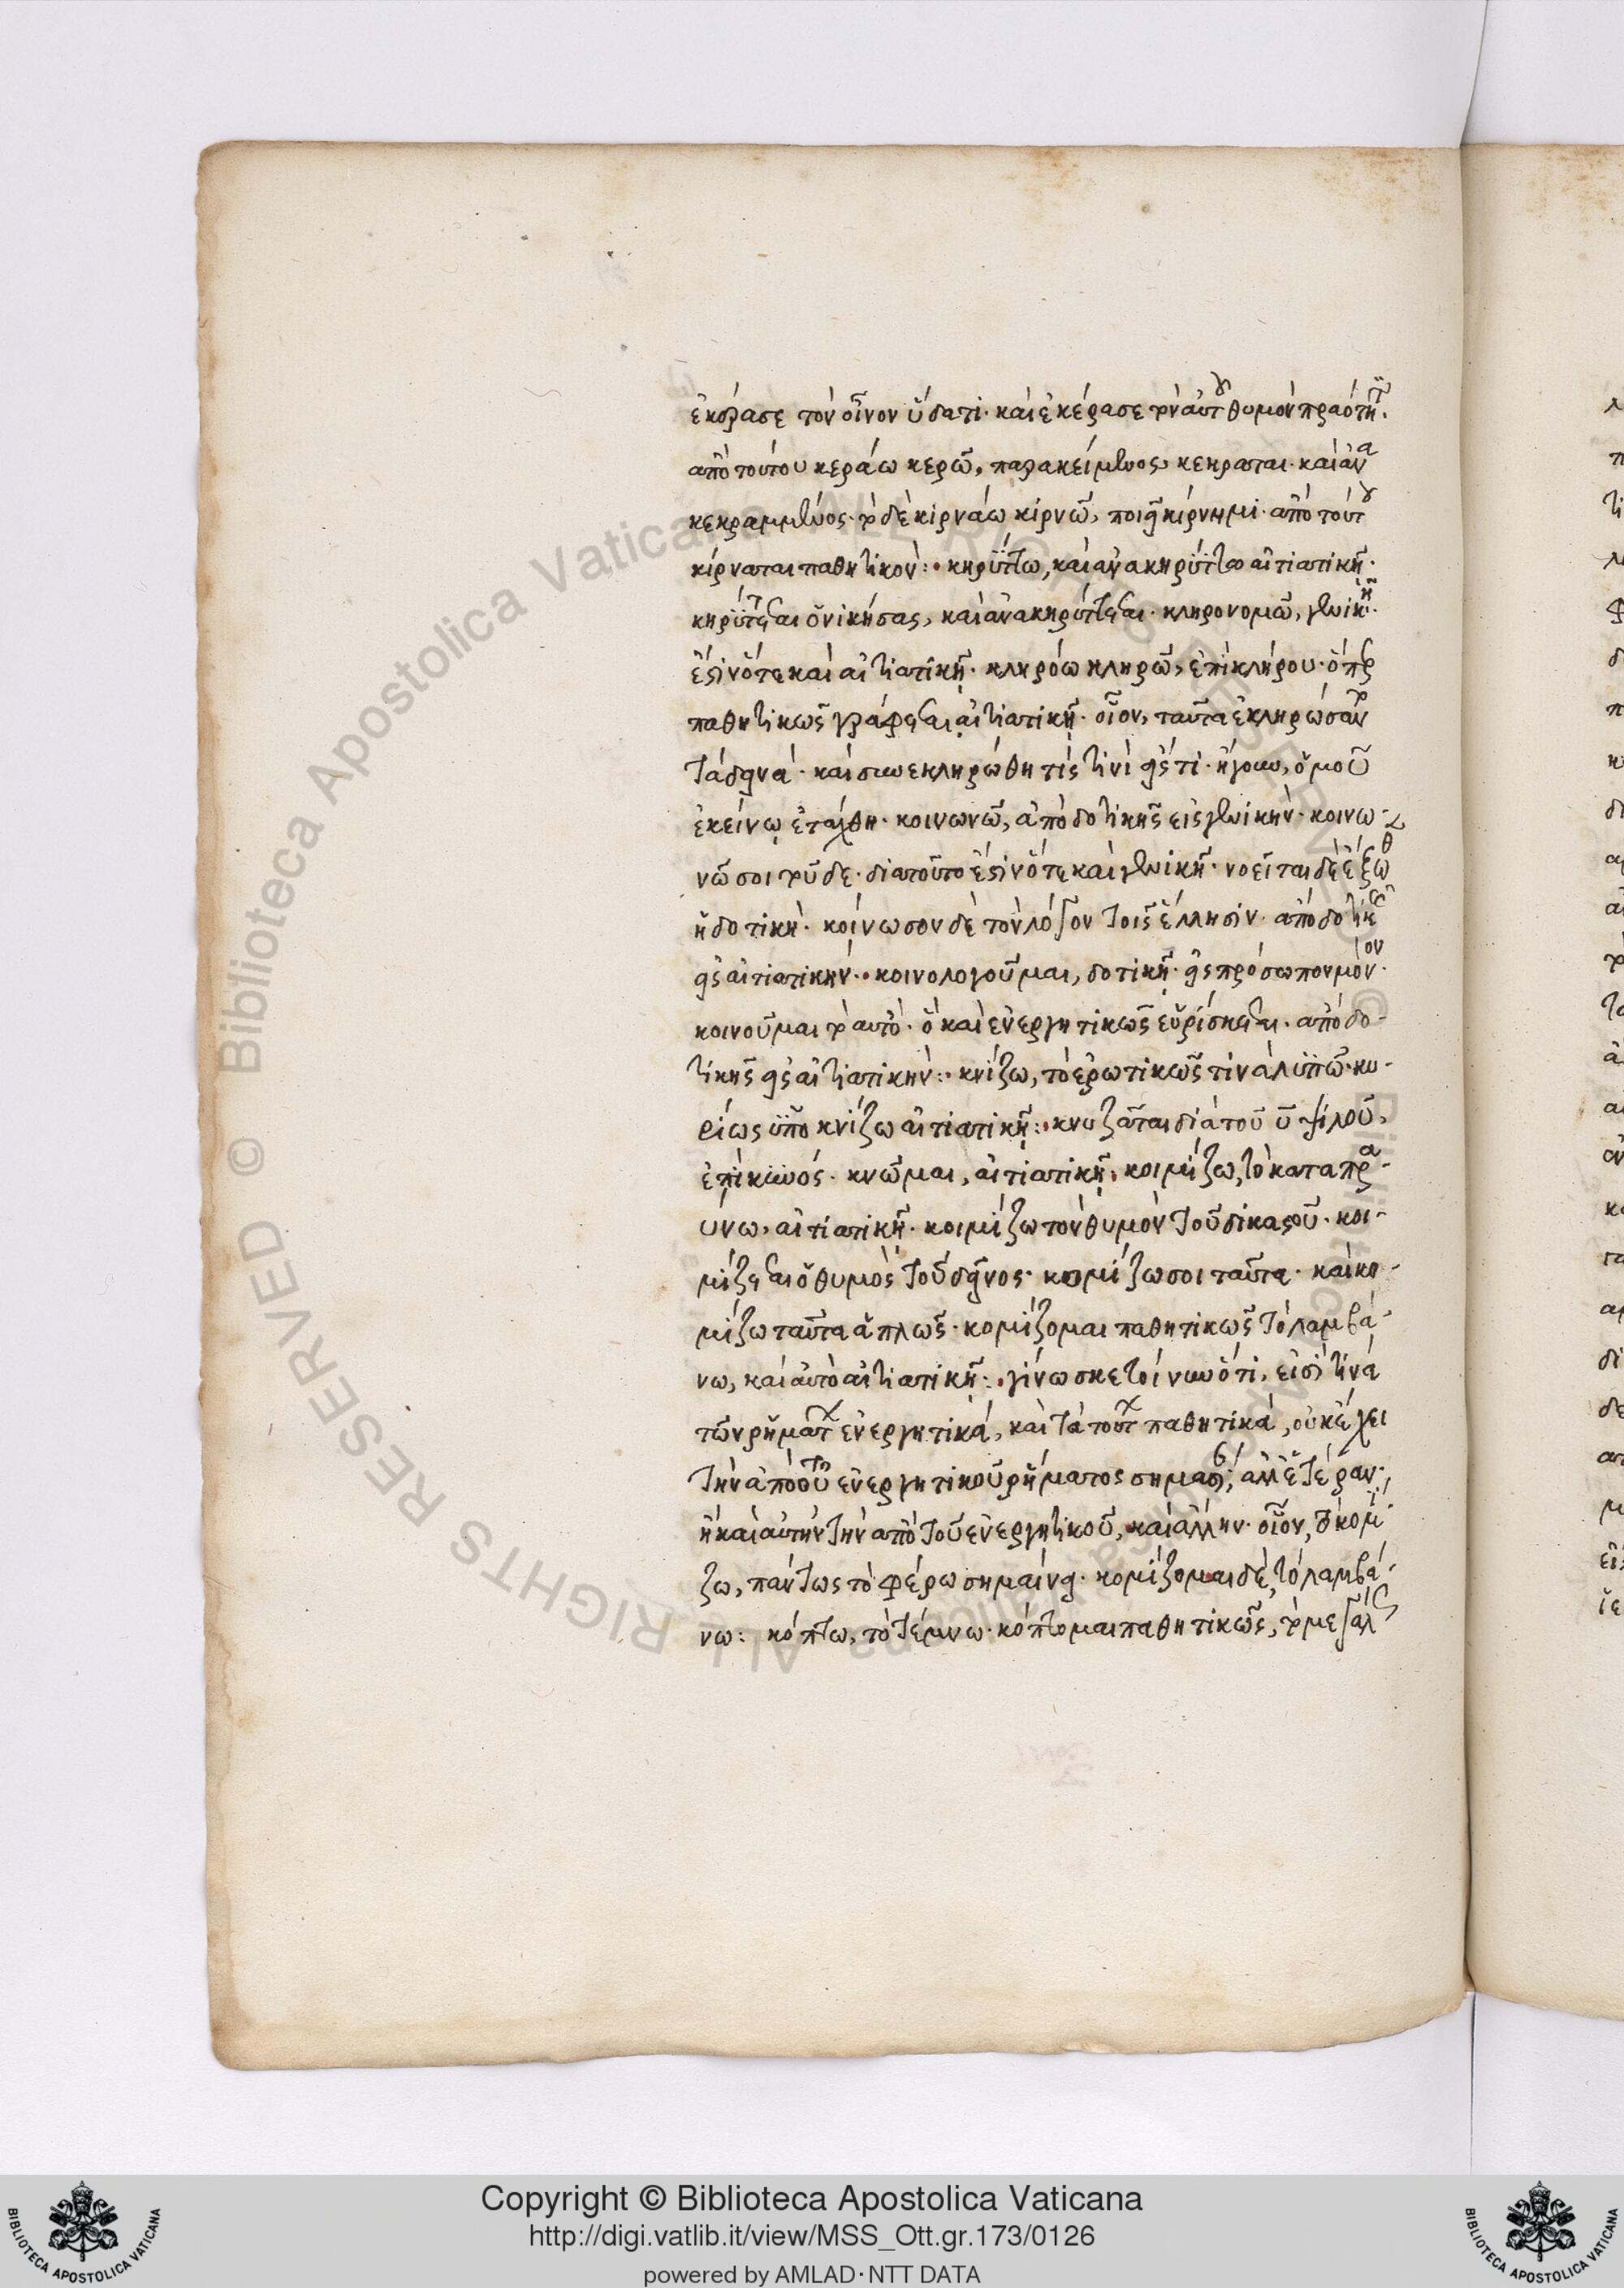 ἐκέρασε τὸν οἶνον ὕδατι· καὶ ἐκέρασε τὸν αὐτοῦ θυμὸν πραότητι·
ἀπὸ τούτου κεράω κερῶ, παρακείμενος κέκραται· καὶ ἀνα
κεκραμμένος· τὸ δὲ κιρνάω κιρνῶ, ποιεῖ κίρνημι· ἀπὸ τούτου
κίρναται παθητικόν: κηρύττω, καὶ ἀνακηρύττω αἰτιατικῇ·
κηρύττεται ὁ νικήσας, καὶ ἀνακηρύττεται· κληρονομῶ, γενικῇ·
ἔστιν ὅτε καὶ αἰτιατικῇ· κληρόω κληρῶ, ἐπὶ κλήρου· ὅπερ
παθητικῶς γράφεται αἰτιατικῇ· οἷον, ταῦτα ἐκληρώσαντο
τὰ δεῖνα· καὶ συνεκληρώθη τίς τινὶ εἴς τι· ἤγουν, ὁμοῦ
ἐκείνω ἐτάχθη· κοινωνῶ, ἀπὸ δοτικῆς εἰς γενικήν· κοινω-
νῶ σοι τοῦδε· διατοῦτο ἔστιν ὅτε καὶ γενικῇ· νοεῖται δὲ ἔξωθ
ἡ δοτική· κοίνωσον δὲ τὸν λόγον τοῖς ἕλλησιν· ἀπὸ δοτικῆς
εἰς αἰτιατικήν· κοινολογοῦμαι, δοτικῇ· εἰς πρόσωπον μόνον·
κοινοῦμαι τὸ αὐτό· ὃ καὶ ἐνεργητικῶς εὑρίσκεται· ἀπὸ δο-
τικῆς εἰς αἰτιατικήν: κνίζω, τὸ ἐρωτικῶς τινὰ λυπῶ· κυ-
ρίως ὑποκνίζω αἰτιατικῇ: κνυζᾶται διὰ τοῦ υ ψιλοῦ,
ἐπὶ κυνός· κνῶμαι, αἰτιατικῇ· κοιμίζω, τὸ καταπρα-
ύνω, αἰτιατικῇ· κοιμίζω τὸν θυμὸν τοῦ δικαστοῦ· κοι-
μίζεται ὁ θυμὸς τοῦ δεῖνος· κομίζω σοι ταῦτα· καὶ κο-
μίζω ταῦτα ἁπλῶς· κομίζομαι παθητικῶς τὸ λαμβά-
νω, καὶ αὐτὸ αἰτιατικῇ: γίνωσκε τοίνυν ὅτι, εἰσί τινα
τῶν ῥημάτων ἐνεργητικά, καὶ τὰ τούτων παθητικά, οὐκ ἔχει
τὴν ἀπὸ τοῦ ἐνεργητικοῦ ῥήματος σημασίαν, ἀλλ' ἑτέραν·
ἢ καὶ αὐτὴν τὴν ἀπὸ τοῦ ἐνεργητικοῦ, καὶ ἄλλην· οἷον, τὸ κομί
ζω, πάντως τὸ φέρω σημαίνει· κομίζομαι δὲ, τὸ λαμβά-
νω: κόπτω, τὸ τέμνω· κόπτομαι παθητικῶς, τὸ μεγάλως
Copyright © Biblioteca Apostolica Vaticana
http://digi.vatlib.it/view/MSS_Ott.gr.173/0126
powered by AMLAD·NTT DATA